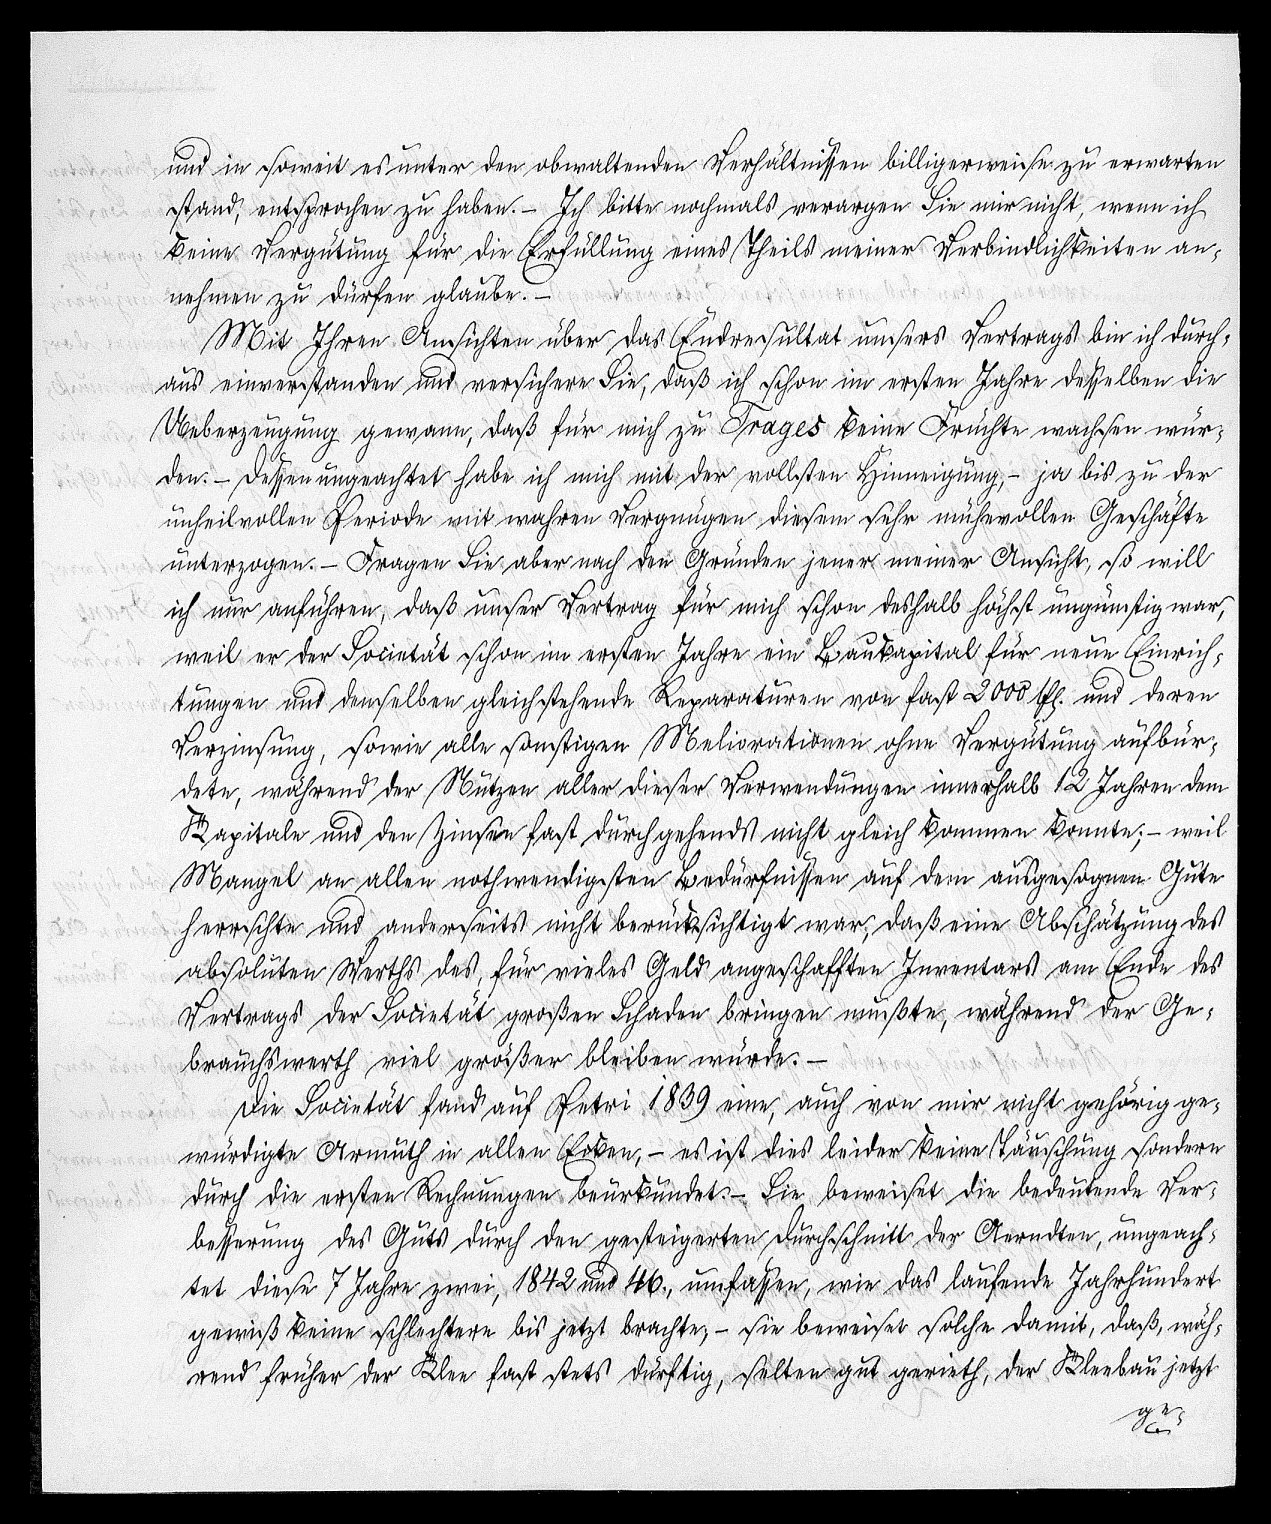 und in soweit es unter den obwaltenden Verhältnissen billigerweise zu erwarten
stand, entsprochen zu haben. – Ich bitte nochmals verargen Sie mir nicht, wenn ich
keine Vergütung für die Erfüllung eines Theils meiner Verbindlichkeiten an-
nehmen zu dürfen glaube. –
Mit Ihren Ansichten über das Endresultat unsers Vertrags bin ich durch-
aus einverstanden und versichere Sie, daß ich schon im ersten Jahre desselben die
Ueberzeugung gewann, daß für mich zu Trages keine Früchte wachsen wür-
den. – Dessen ungeachtet habe ich mich mit der vollsten Hinneigung, – ja bis zu der
unheilvollen Periode mit wahren Vergnügen diesem sehr mühevollen Geschäfte
unterzogen. – Fragen Sie aber nach den Gründen jener meiner Ansicht, so will
ich nur anführen, daß unser Vertrag für mich schon deshalb höchst ungünstig war,
weil er der Societät schon im ersten Jahre ein Baukapital für neue Einrich-
tungen und denselben gleichstehende Reparaturen von fast 2000 fl. und deren
Verzinsung, sowie alle sonstigen Meliorationen ohne Vergütung aufbür-
dete, während der Nutzen aller dieser Verwendungen innerhalb 12 Jahren dem
Kapitale und den Zinsen fast durchgehends nicht gleich kommen konnte; – weil
Mangel an allen nothwendigsten Bedürfnissen auf dem ausgesognen Gute
herrschte und anderseits nicht berücksichtigt war, daß eine Abschätzung des
absoluten Werths des, für vieles Geld angeschafften Inventars am Ende des
Vertrags der Societät großen Schaden bringen mußte, während der Ge-
brauchswerth viel größer bleiben würde. –
Die Societät fand auf Petri 1839 eine, auch von mir nicht gehörig ge-
würdigte Armuth in allen Ecken, – es ist dies leider keine Täuschung sondern
durch die ersten Rechnungen beurkundet. – Sie beweiset die bedeutende Ver-
besserung des Guts durch den gesteigerten Durchschnitt der Aerndten, ungeach-
tet diese 7 Jahre zwei, 1842 und 46., umfassen, wie das laufende Jahrhundert
gewiß keine schlechtere bis jetzt brachte, – sie beweiset solche damit, daß, wäh-
rend früher der Klee fast stets dürftig, selten gut gerieth, der Kleebau jetzt
ge-